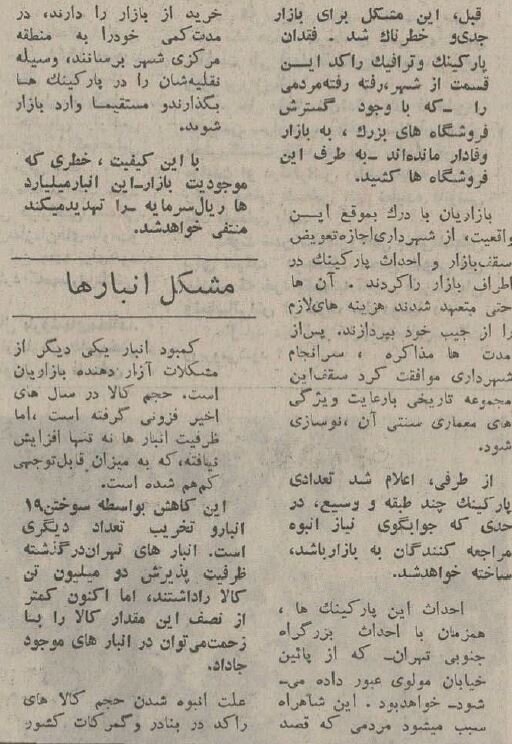 قبل، این مشکل برای بازار
جدی‌و خطرناک شد . فقدان
پارکینک وترافیک راکد ایـــن
قسمت از شهر،رفته رفته‌مردمی
را ــ‌که با وجود گسترش
فروشگاه های بزرک ، به بازار
وفادار مانده‌اند ــ‌به طرف این
فروشگاه ها کشید.
بازاریان با درک بموقع ایـــن
واقعیت، از شهرداری‌اجازه‌تعویض
سقف‌بازار و احداث پارکینک در
اطراف بازار راکردند . آن ها
حتی متعهد شدند هزینه های‌لازم
را از جیب خود بپردازند. پس‌از
مدت ها مذاکره ، سرانجام
شهرداری موافقت کرد سقف‌این
مجموعه تاریخی بارعایت ویژگی
های معماری سنتی آن ،نوسازی
شود.
از طرفی، اعلام شد تعدادی
پارکینک چند طبقه و وسیع، در
حدی که جوابگوی نیاز انبوه
مراجعه کنندگان به بازارباشد،
ساخته خواهدشد.
احداث این پارکینک ها ،
همزمان با احداث بزرگراه
جنوبی تهران‌ــ که از پائین
خیابان مولوی عبور داده می‌ــ
شودــ خواهدبود . این شاهراه
سبب میشود مردمی که قصد
خرید از بازار را دارند، در
مدت‌کمی خودرا به منطقه
مرکزی شهر برسانند، وسیله
نقلیه‌شان را در پارکینک هـا
بگذارندو مستقیما وارد بازار
شوند.
با این کیفیت ، خطری که
موجودیت بازارــ‌این انبارمیلیارد
ها ریال‌سرمایه ــ‌را تهدیدمیکند
منتفی خواهدشد.
مشکل انبارها
کمبود انبار یکی دیگر از
مشکلات آزار دهنده بازاریان
است. حجم کالا در سال های
اخیر فزونی گرفته است ،اما
ظرفیت انبار ها نه تنها افزایش
نیافته،که به میزان قابل‌توجهی
کم‌هم شده است.
این کاهش بواسطه سوختن۱۹
انبارو تخریب تعداد دیگری
است. انبار های تهران‌درگذشته
ظرفیت پذیرش دو میلیون تن
کالا راداشتند، اما اکنون کمتر
از نصف این مقدار کالا را بـا
زحمت‌می‌توان در انبار های موجود
جاداد.
علت انبوه شدن حجم کالا های
راکد در بنادر وگمرکات کشور